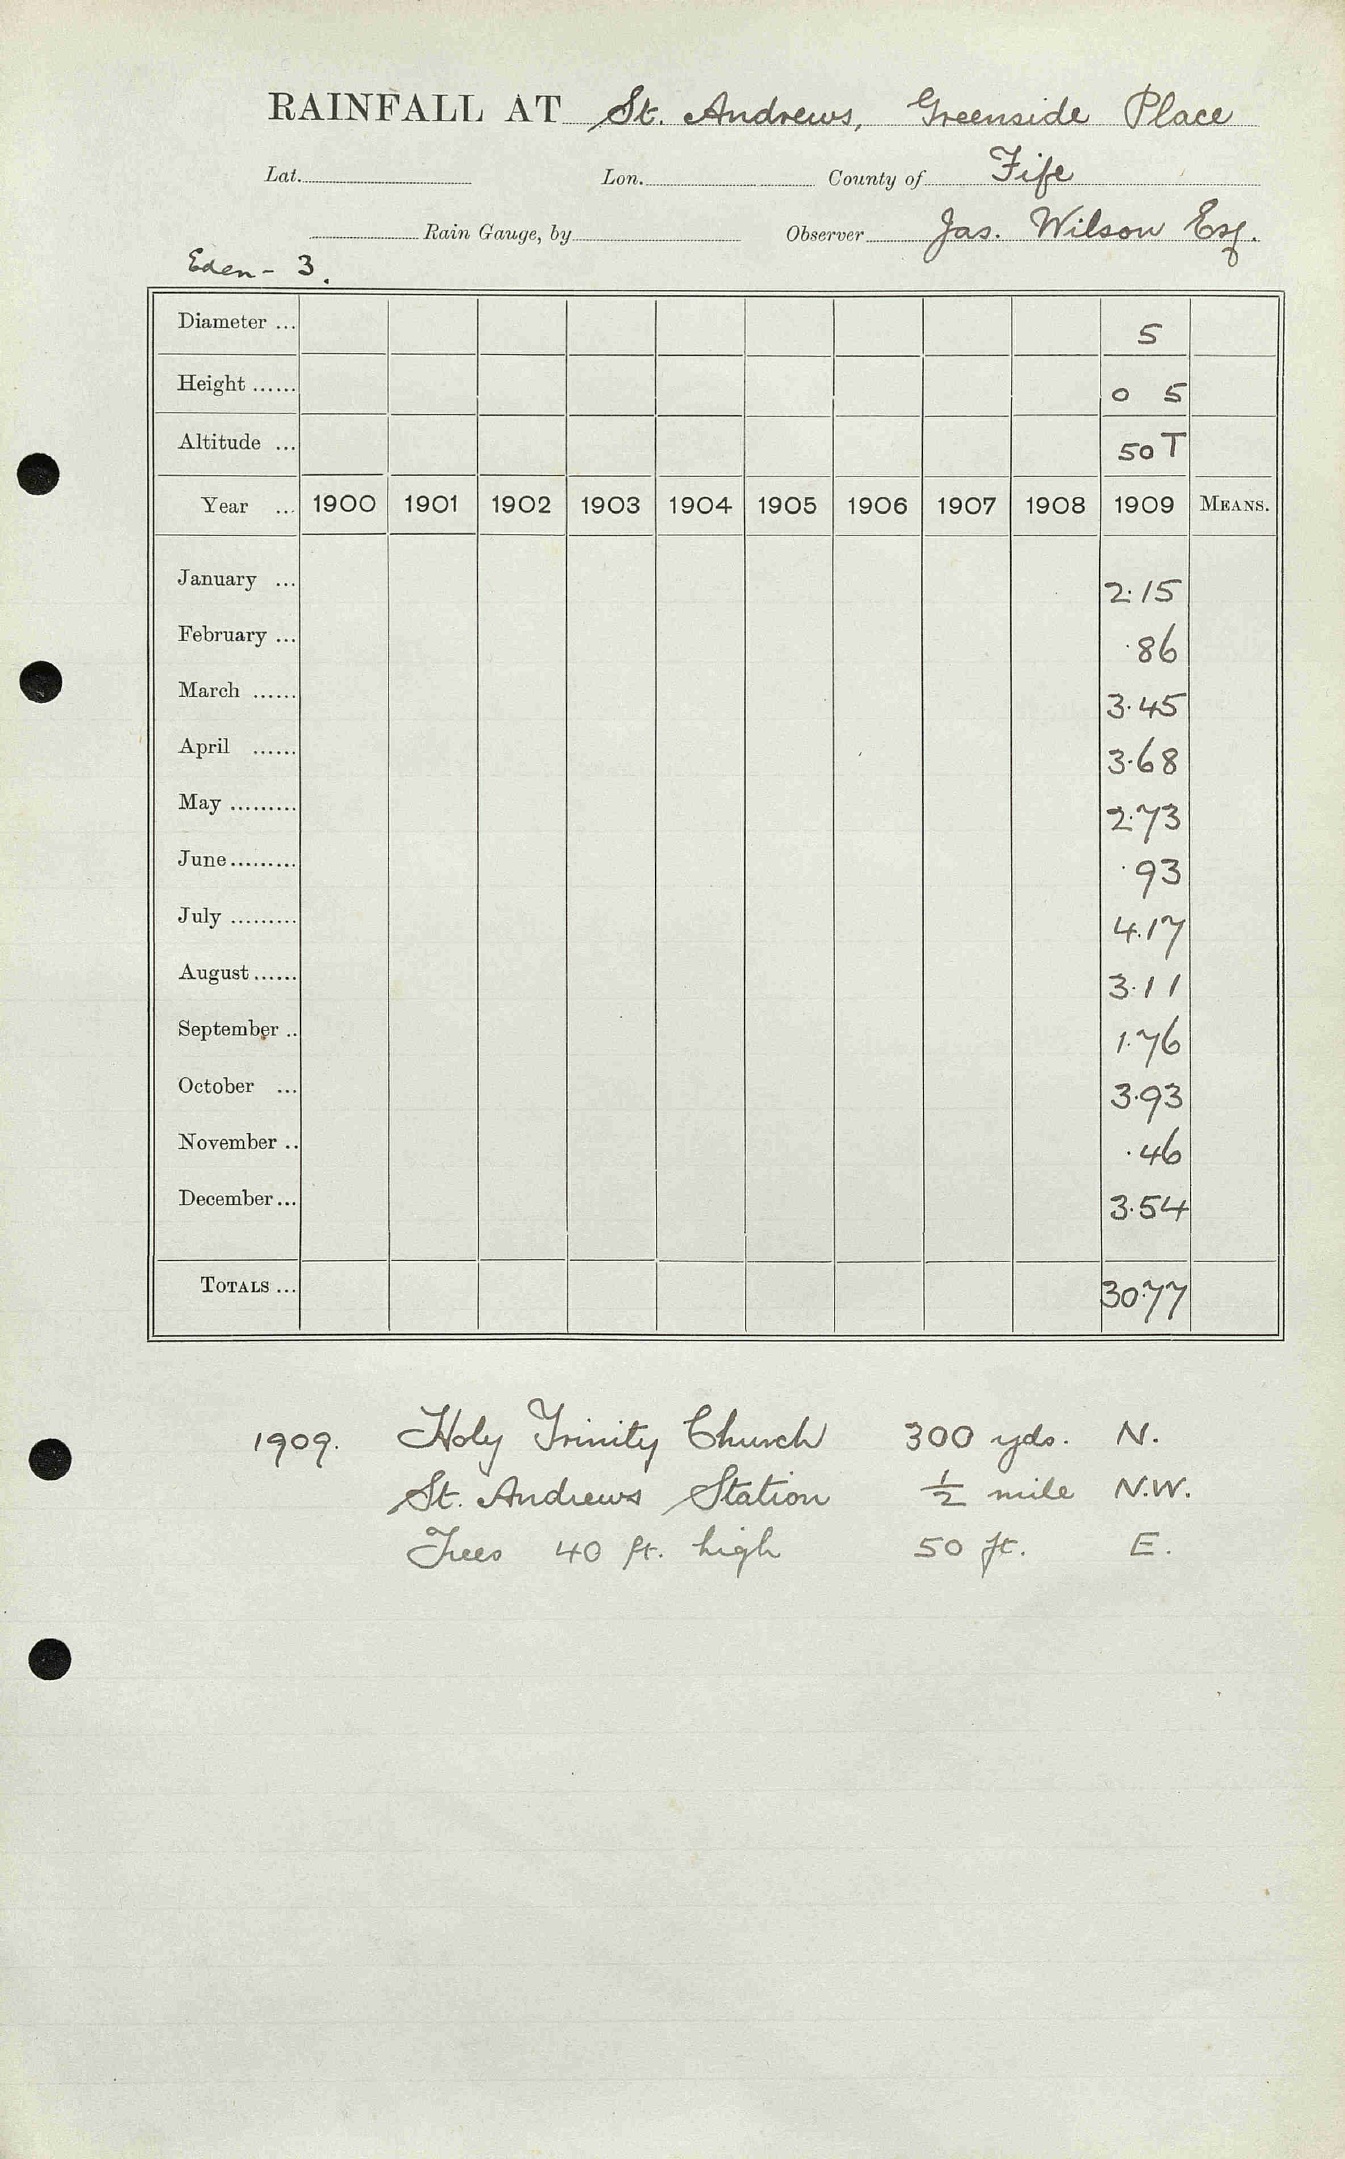 RAINFALL AT St. Andrews, Greenside Place
Lat. Lon. County of Fife
Rain Gauge, by Observer Jas. Wilson Esq.
Eden - 3.
Diameter ... 5
Height ...... 0 5
Altitude ... 50 T
Year ... 1900 1901 1902 1903 1904 1905 1906 1907 1908 1909 MEANS.
January ... 2.15
February ... .86
March ...... 3.45
April ...... 3.68
May ......... 2.73
June ......... .93
July ......... 4.17
August ...... 3.11
September .. 1.76
October ... 3.93
November .. .46
December ... 3.54
TOTALS ... 30.77
1909. Holy Trinity Church 300 yds. N.
St. Andrews Station ½ mile N.W.
Trees 40 ft. high 50 ft. E.